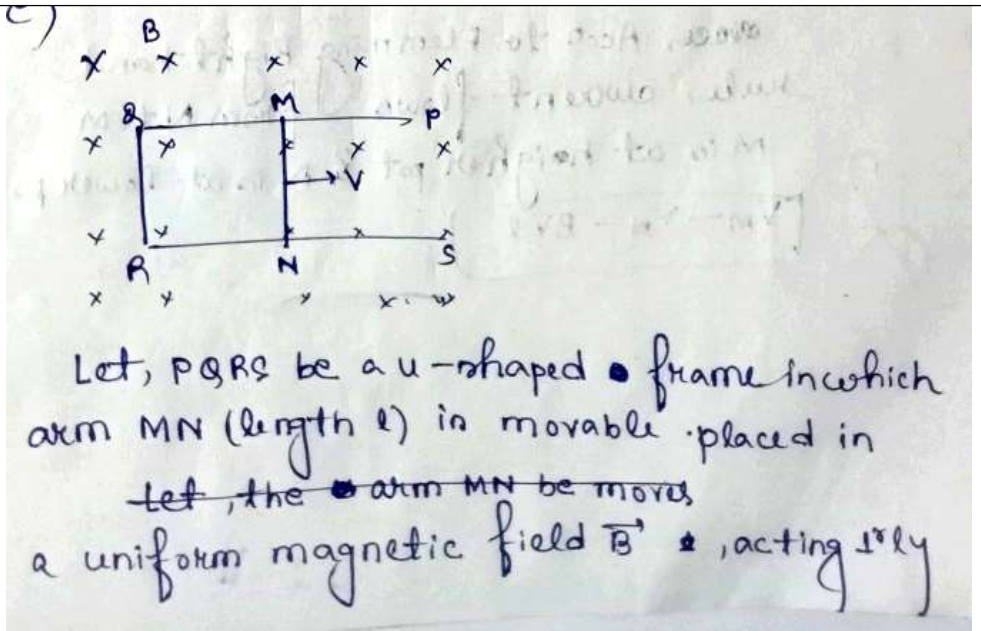 c)
B
x x x x x
Q M P
x x x x x
V
x x x x x
R N S
x x x x. x
Let, PQRS be a u-shaped frame in which
arm MN (length l) is movable .placed in
Let, the arm MN be moves
a uniform magnetic field B⃗ , acting ⊥rly